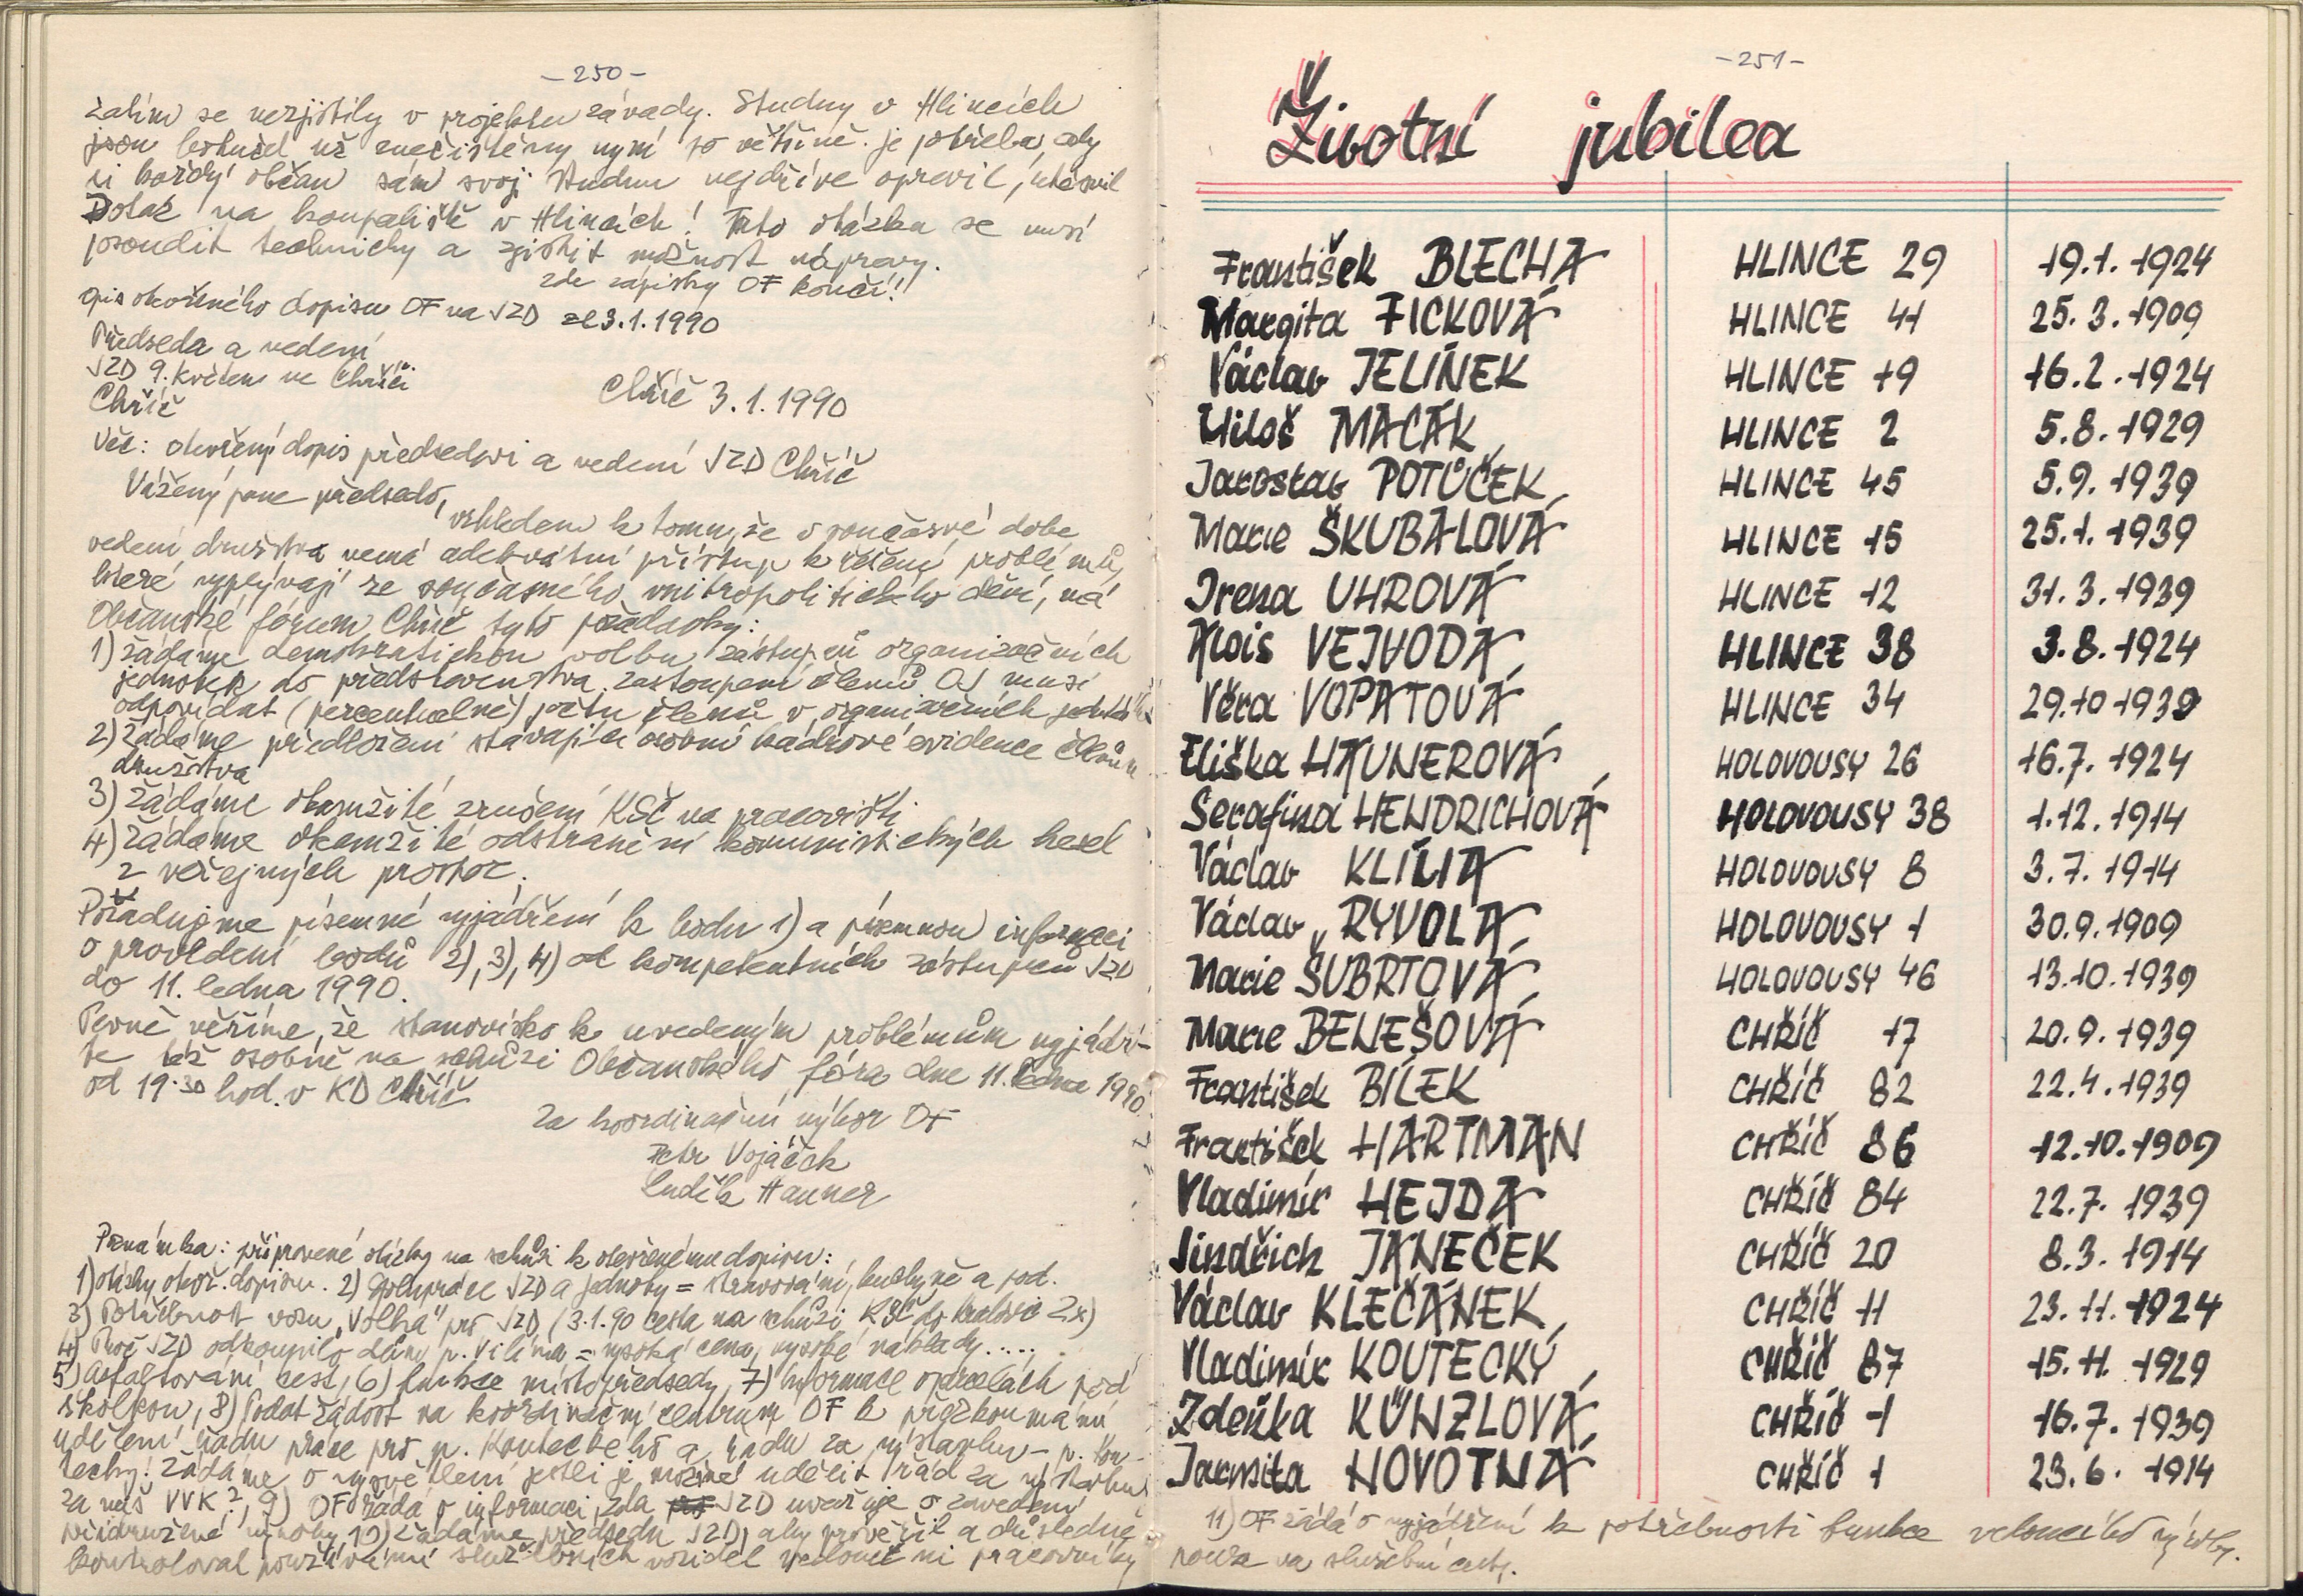 - 250 -
zatím se nezjistily v projektu závady. Studny v Hlincích
jsou bohužel už znečistěny nyní po většině. je potřeba, aby
si každý občan sám svoji studnu nejdříve opravil, utěsnil
Dotaz na koupaliště v Hlincích! Tato otázka se musí
posoudit technicky a zjistit možnost nápravy.
zde zápisky OF končí!!
opis otevřeného dopisu OF na JZD ze 3.1.1990
Předseda a vedení
JZD 9. květen ve Chříči
Chříč
Chříč 3.1.1990
Věc: otevřený dopis předsedovi a vedení JZD Chříč
Vážený pane předsedo,
vzhledem k tomu, že v současné době
vedení družstva nemá adekvátní přístup k řešení problémů,
které vyplývají ze současného vnitropolitického dění, má
Občanské fórum Chříč tyto požadavky:
1) žádáme demokratickou volbu zástupců organizačních
jednotek do představenstva. zastoupení členů OJ musí
odpovídat (percentuelně) počtu členů v organizačních jednotkách
2) Žádáme předložení stávající osobní kádrové evidence členům
družstva
3) žádáme okamžité zrušení KSČ na pracovišti
4) žádáme okamžité odstranění komunistických hesel
z veřejných prostor.
Požadujeme písemné vyjádření k bodu 1) a písemnou informaci
o provedení bodů 2), 3), 4) od kompetentních zástupců JZD
do 11. ledna 1990.
Pevně věříme, že stanovisko k uvedeným problémům vyjádří-
te též osobně na schůzi Občanského fóra dne 11. ledna 1990
od 19.30 hod. v KD Chříč
Za koordinační výbor OF
Petr Vojáček
Luděk Hauner
Poznámka: připravené otázky na schůzi k otevřenému dopisu:
1) otázky otevř. dopisu. 2) spolupráce JZD a jednoty = stravování, kuchyně a pod.
3) Potřebnost vozu "Volha" pro JZD (3.1.90 cesta na schůzi KSČ do Kralovic 2x)
4) Proč JZD odkoupilo dům p. Vilíma = vysoká cena, vysoké náklady.....
5) Asfaltování cest, 6) funkce místopředsedy, 7) Informace o parcelách pod
školkou, 8) Podat žádost na koordinační centrum OF k přezkoumání
udělení řádu práce pro p. Kouteckého a řádu za výstavbu - p. Kou-
tecký! žádáme o vysvětlení jestli je možné udělit řád za výstavbu
za náš VVK?, 9) OF žádá o informaci, zda JZD uvažuje o zavedení
přidružené výroby 10) žádáme předsedu JZD, aby prověřil a důsledně
kontroloval používání služebních vozidel vedoucími pracovníky
- 251 -
Životní jubilea
František BLECHA HLINCE 29 19.1. 1924
Margita FICKOVÁ HLINCE 41 25. 3. 1909
Václav JELÍNEK HLINCE 19 16.2. 1924
Miloš MACÁK HLINCE 2 5.8. 1929
Jaroslav POTŮČEK HLINCE 45 5.9. 1939
Marie ŠKUBALOVÁ HLINCE 15 25.1. 1939
Irena UHROVÁ HLINCE 12 31. 3. 1939
Alois VEJVODA HLINCE 38 3.8. 1924
Věra VOPATOVÁ HLINCE 34 29.10 1939
Eliška HAUNEROVÁ HOLOVOUSY 26 16.7. 1924
Serafina HENDRICHOVÁ HOLOVOUSY 38 1.12. 1914
Václav KLÍMA HOLOVOUSY 8 3.7. 1914
Václav RYVOLA HOLOVOUSY 1 30.9. 1909
Marie ŠUBRTOVÁ HOLOVOUSY 46 13.10. 1939
Marie BENEŠOVÁ CHŘÍČ 17 20.9. 1939
František BÍLEK CHŘÍČ 82 22.4. 1939
František HARTMAN CHŘÍČ 86 12.10.1909
Vladimír HEJDA CHŘÍČ 84 22.7. 1939
Jindřich JANEČEK CHŘÍČ 20 8.3. 1914
Václav KLEČÁNEK CHŘÍČ 11 23.11. 1924
Vladimír KOUTECKÝ CHŘÍČ 87 15.11. 1929
Zdeňka KÜNZLOVÁ CHŘÍČ 1 16.7. 1939
Jarmila NOVOTNÁ CHŘÍČ 1 23.6. 1914
11) OF žádá o vyjádření k potřebnosti funkce vedoucího výroby.
na služební cesty.